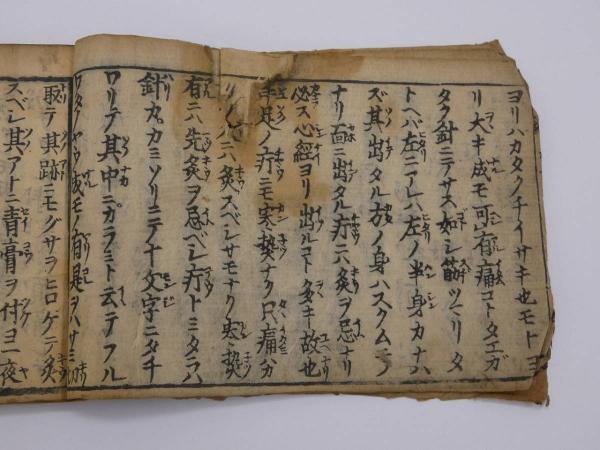 ヨリハカタクチイサキ也モトヨ
リ大キ成モ可有痛コトタエガ
タク針ニテサス如シ筋ツマリタ
トヘバ左ニアレハ左ノ半身カナハ
ズ其出タル故ノ身ハスクムモノ
ナリ面ニ出タル疔ニハ灸ヲ忌ナリ
必ス心經ヨリ出ルコト多キ故也
手足ノ疔ニモ寒熱ナク只痛分
ニハ灸スベシサモナク寒熱
有ニハ先灸ヲ忌ベシ疔トミタラハ
針カミソリニテ十文字ニタチ
ワリテ其中ニ云テフル
成モノ有是ヲハサミ
取テ其跡ニモグサヲヒロゲテ灸
スベシ其アトニ青膏ヲ付ヨ一夜